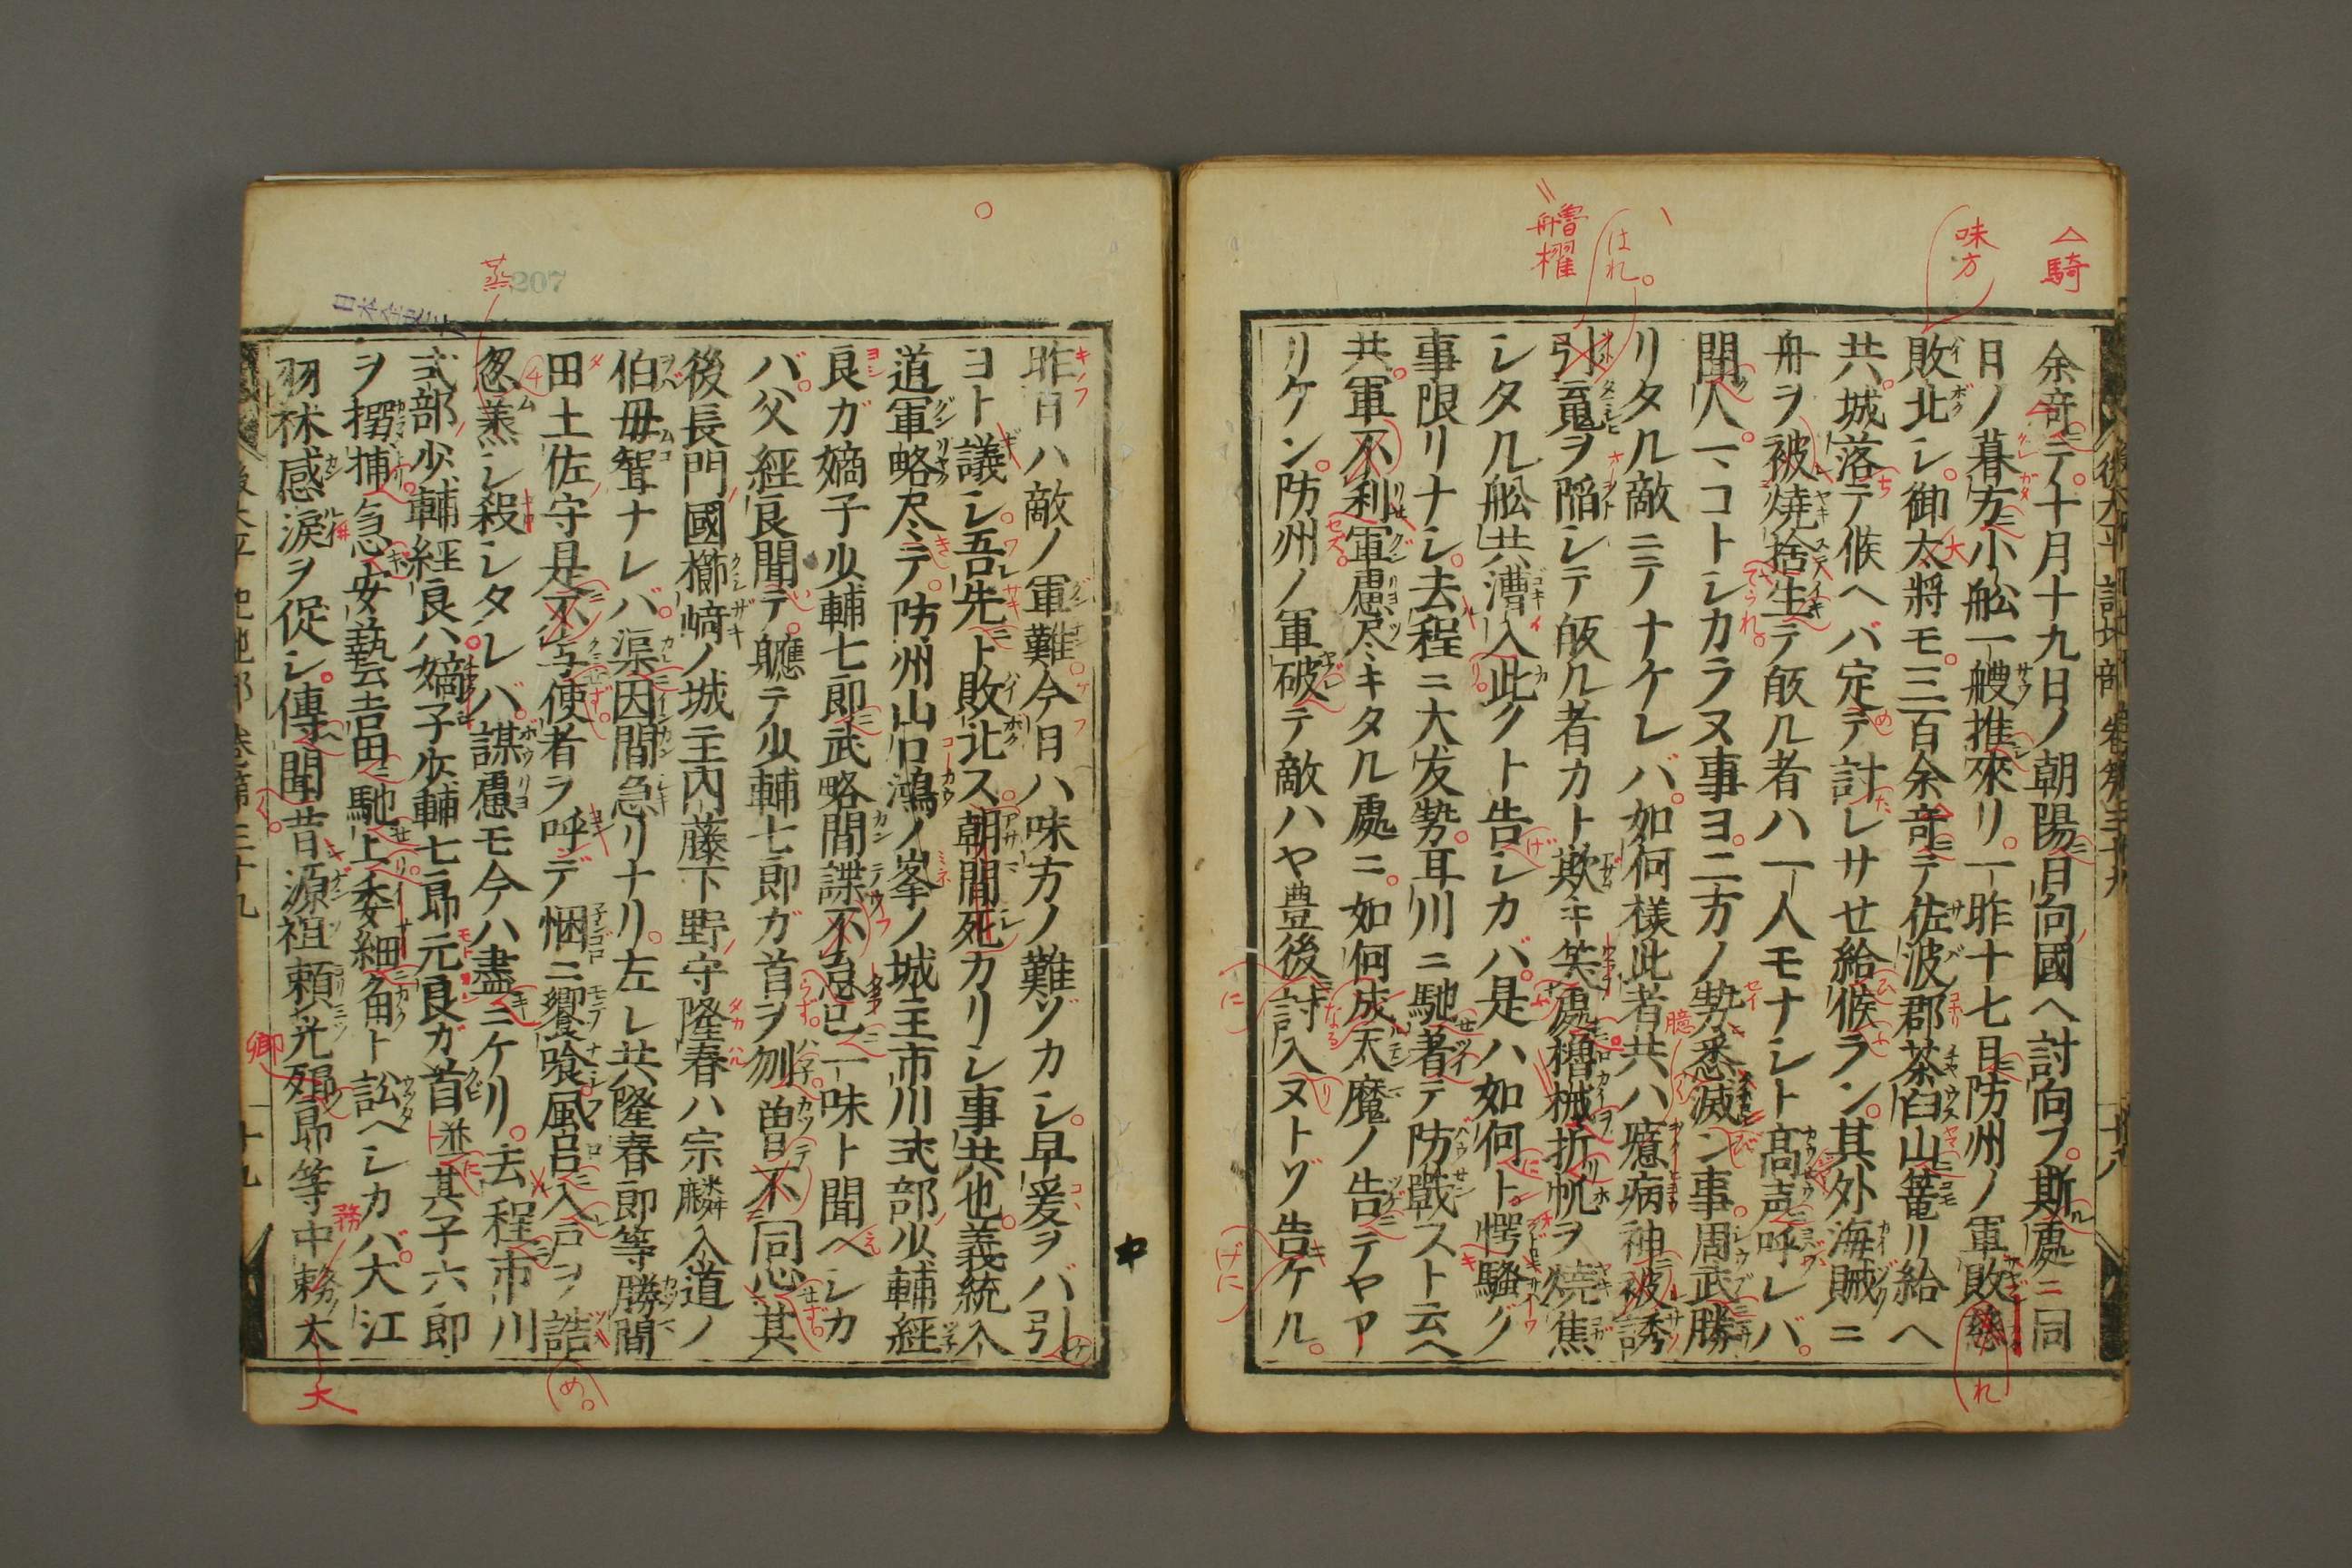 余竒ニテ十月十九日ノ朝陽日向國ヘ討向フ斯ル處ニ同
日ノ暮方ニ小舩一艘推來リ一昨十七日防州ノ軍敗
敗北シ御太將モ三百余竒ニテ佐波郡茶臼山ニ篭リ給ヘ
共城落テ候ヘバ定テ討レサせ給候ラン其外海賊ニ
舟ヲ被燒捨生テ皈ル者ハ一人モナシト髙声ニ呼レバ
聞人一コトシカラヌ事ヨ二方ノ勢悉滅ン事周武勝
リタル敵ニテノナケレバ如何樣此者共ハ瘧病神ニ被誘
引䰟ヲ䧟シテ皈ル者カト欺キ笑處櫓械折帆ヲ燒焦
シタル舩共漕入此クト告シカバ是ハ如何ト愕騒グ
事限リナシ去程ニ大友勢耳川ニ馳着テ防戰スト云ヘ
共軍不利軍慮尽キタル處ニ如何成太魔ノ告ニテヤア
リケン防州ノ軍破テ敵ハヤ豊後討入ヌトゾ告ケル
昨日ハ敵ノ軍難今日ハ味方ノ難ヅカシ早爰ヲバ引
ヨト議シ吾先ニト敗北ス朝間死カリシ事共也義統入
道軍略尽テ防州山口鴻ノ峯ノ城主市川式部少輔經
良ガ嫡子少輔七郎ニ武略間諜不怠已ニ一味ト聞ヘシカ
バ父經良聞テ軈テ少輔七郎ガ首ヲ刎曽不同心其
後長門國櫛﨑ノ城主内藤下野守隆春ハ宗麟入道ノ
伯母聟ナレバ渠ニ因間急リナリ左レ共隆春郎等勝間
田土佐守是不与使者ヲ呼デ悃ニ饗喰風呂ニ入戸ヲ詰
忽蒸シ殺シタレバ謀慮モ今ハ盡ニケリ去程ニ市川
式部少輔經良ハ嫡子少輔七郎元良ガ首並其子六郎
ヲ搦捕急安藝吉田ニ馳上委細ニ角ト訟ヘシカバ大江
羽林感涙ヲ促シ傳ヘ聞昔源祖頼光殞ノ郎等中務ノ太
後太平記地部 巻第三十九
十八
後太平記地部 巻第三十九
十九
△騎
味方
はれ
艪櫂
蒸
207
卿
務
大